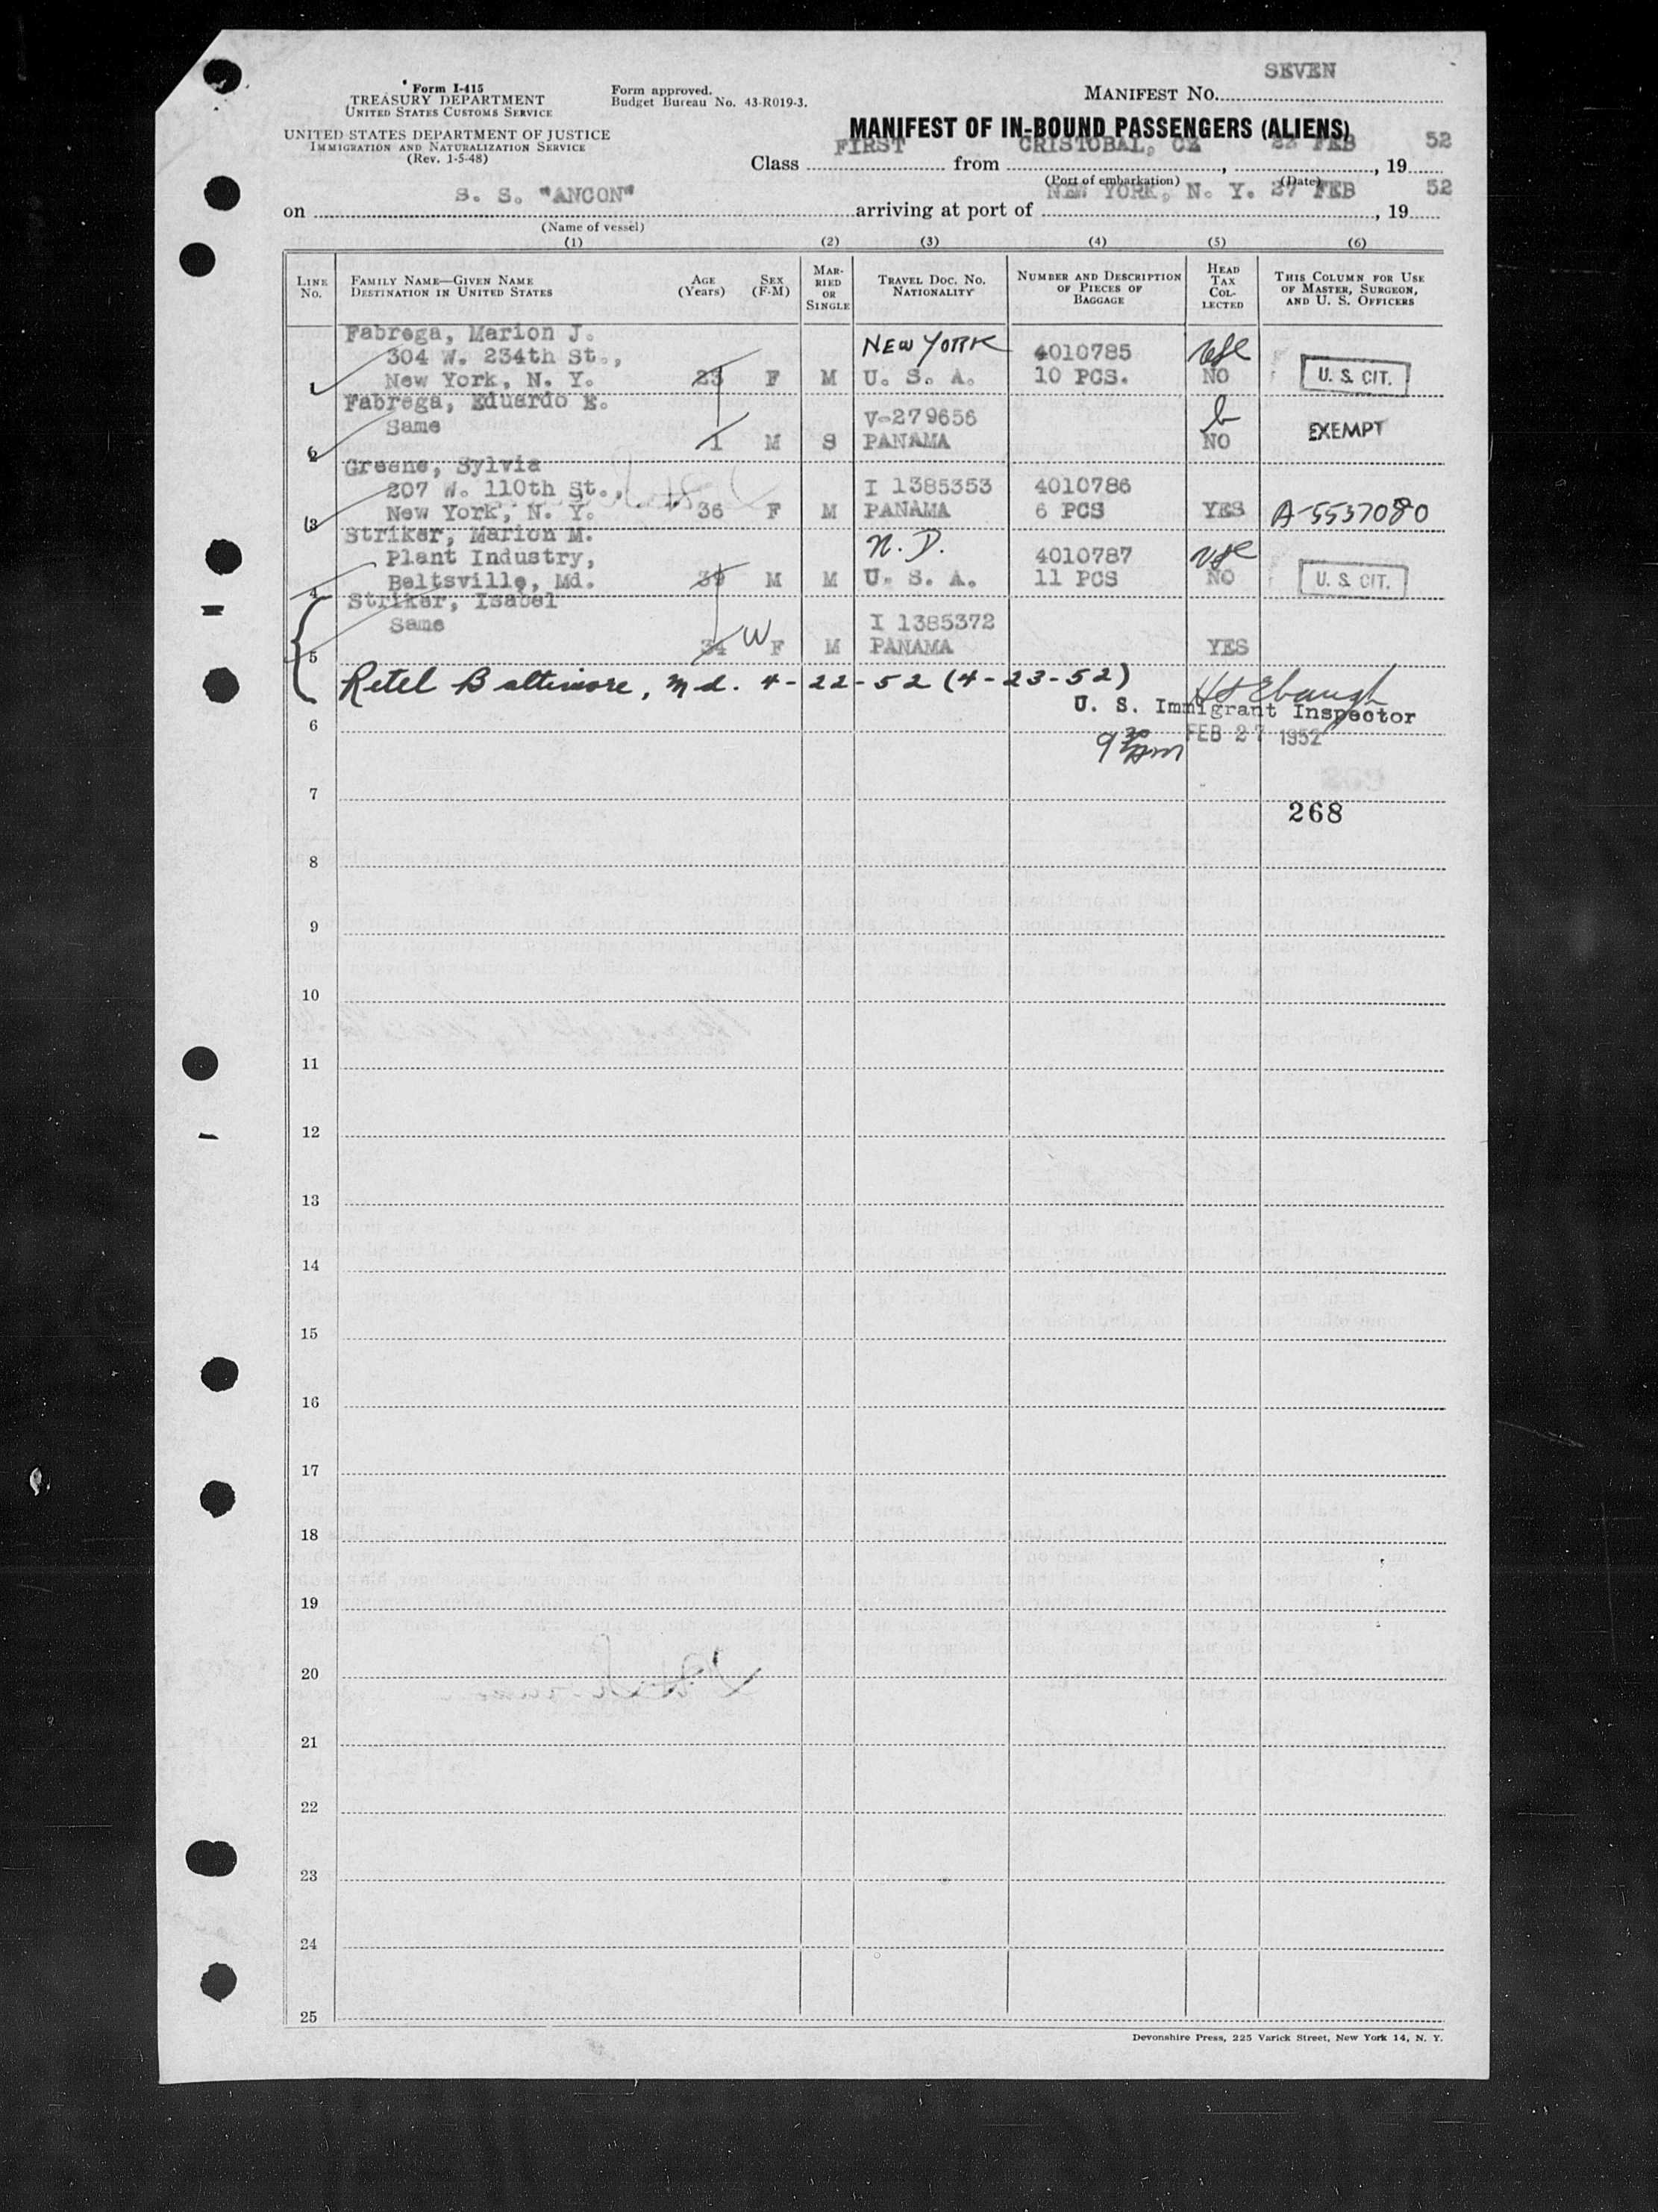 SEVEN
Form I-415
TREASURY DEPARTMENT
UNITED STATES CUSTOMS SERVICE
UNITED STATES DEPARTMENT OF JUSTICE
IMMIGRATION AND NATURALIZATION SERVICE
(Rev. 1-5-48)
Form approved.
Budget Bureau No. 43-R019-3.
MANIFEST No.
MANIFEST OF IN-BOUND PASSENGERS (ALIENS)
Class FIRST from CRISTOBAL, CZ, FEB, 19 52
(Port of embarkation) (Date)
on S. S. "ANCON" arriving at port of NEW YORK, N. Y. 27 FEB, 19 52
(Name of vessel)
(1) (2) (3) (4) (5) (6)
LINE No. FAMILY NAME—GIVEN NAME DESTINATION IN UNITED STATES AGE (Years) SEX (F-M) MARRIED OR SINGLE TRAVEL DOC. NO. NATIONALITY NUMBER AND DESCRIPTION OF PIECES OF BAGGAGE HEAD TAX COLLECTED THIS COLUMN FOR USE OF MASTER, SURGEON, AND U. S. OFFICERS
Fabrega, Marion J.
304 W. 234th St., NEW YORK 4010785
New York, N. Y. 23 F M U. S. A. 10 PCS. NO U. S. CIT.
Fabrega, Eduardo E.
Same V-279656
2 1 M S PANAMA NO EXEMPT
Greene, Sylvia
207 W. 110th St., I 1385353 4010786
3 New York, N. Y. 36 F M PANAMA 6 PCS YES A-5537080
Striker, Marion M.
Plant Industry, N. D. 4010787
4 Beltsville, Md. 39 M M U. S. A. 11 PCS NO U. S. CIT.
Striker, Isabel
Same I 1385372
5 34 W F M PANAMA YES
Retel Baltimore, Md. 4-22-52 (4-23-52)
U. S. Immigrant Inspector
6
9 30 am FEB 27 1952
7
268
8
9
10
11
12
13
14
15
16
17
18
19
20
21
22
23
24
25
Devonshire Press, 225 Varick Street, New York 14, N. Y.